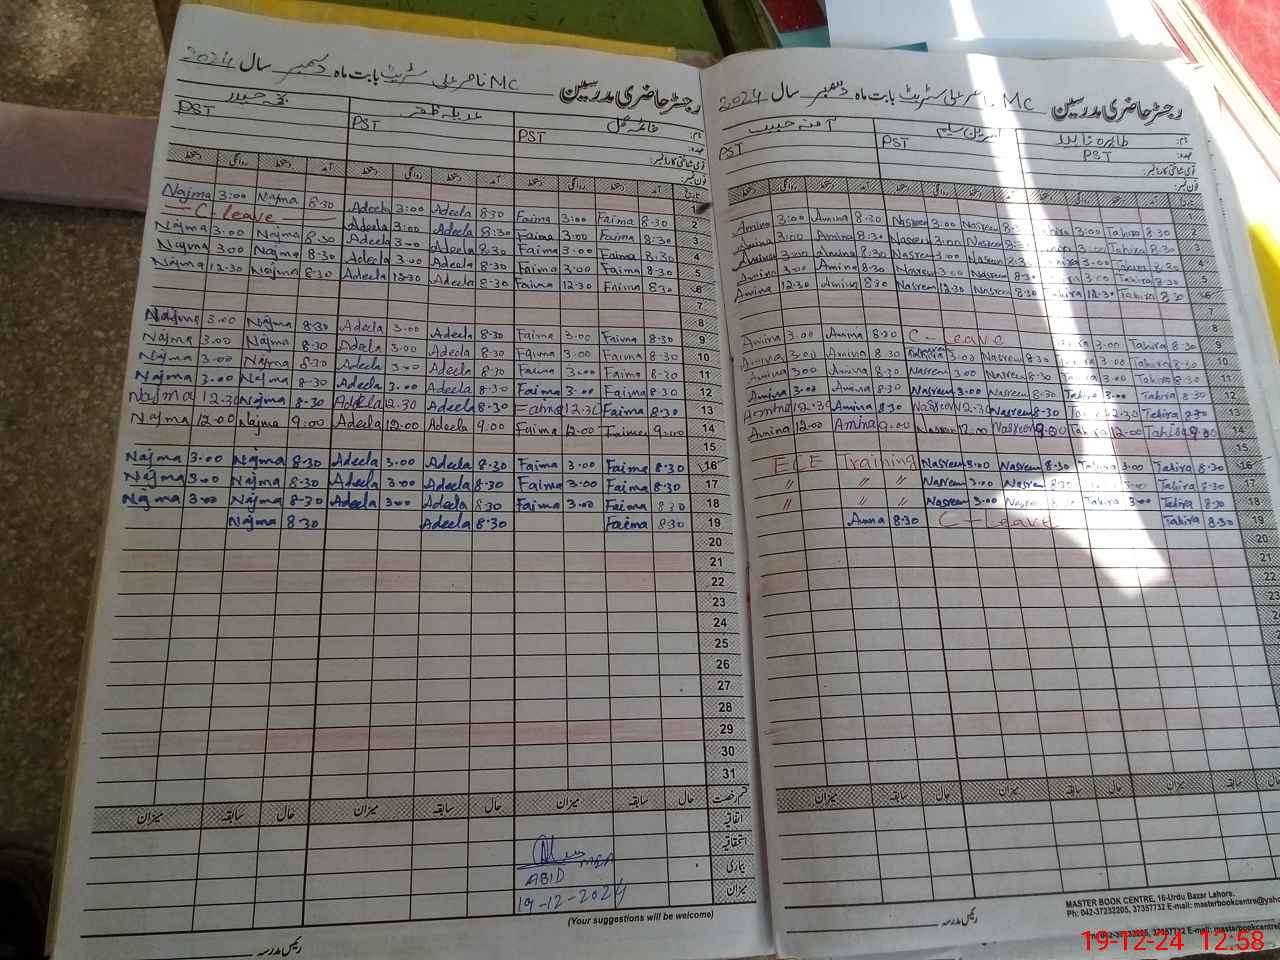 رجسٹر حاضری مدرسین MC ناصر علی سٹریٹ بابت ماہ دسمبر سال 2024
نام: فائمہ گل عدیلہ ظفر نجمہ حیدر
عہدہ: PST PST PST
قومی شناختی کارڈ نمبر:
فون نمبر:
تاریخ آمد دستخط روانگی دستخط آمد دستخط روانگی دستخط آمد دستخط روانگی دستخط
1
Najma 3:00 Najma 8.30 Adeela 3:00 Adeela 8:30 Faima 3:00 Faima 8.30 2
C-leave Adeela 3:00 Adeela 8:30 Faima 3:00 Faima 8:30 3
Najma 3:00 Najma 8.30 Adeela 3:00 Adeela 8:30 Faima 3:00 Faima 8:30 4
Najma 3:00 Najma 8.30 Adeela 3:00 Adeela 8:30 Faima 3:00 Faima 8:30 5
Najma 12.30 Najma 8.30 Adeela 12.30 Adeela 8.30 Faima 12.30 Faima 8:30 6
7
8
Najma 3.00 Najma 8.30 Adeela 3.00 Adeela 8.30 Faima 3.00 Faima 8.30 9
Najma 3.00 Najma 8.30 Adeela 3.00 Adeela 8.30 Faima 3.00 Faima 8.30 10
Najma 3.00 Najma 8.30 Adeela 3.00 Adeela 8.30 Faima 3.00 Faima 8.30 11
Najma 3.00 Najma 8.30 Adeela 3.00 Adeela 8.30 Faima 3.00 Faima 8.30 12
Najma 12.30 Najma 8.30 Adeela 12.30 Adeela 8.30 Faima 12.30 Faima 8.30 13
Najma 12.00 Najma 9:00 Adeela 12.00 Adeela 9.00 Faima 12.00 Faima 9:00 14
15
Najma 3.00 Najma 8.30 Adeela 3.00 Adeela 8.30 Faima 3.00 Faima 8.30 16
Najma 3.00 Najma 8.30 Adeela 3.00 Adeela 8.30 Faima 3.00 Faima 8.30 17
Najma 3.00 Najma 8.30 Adeela 3.00 Adeela 8.30 Faima 3.00 Faima 8.30 18
Najma 8.30 Adeela 8.30 Faima 8.30 19
20
21
22
23
24
25
26
27
28
29
30
31
قسم رخصت حال سابقہ میزان حال سابقہ میزان حال سابقہ میزان
اتفاقیہ
استحقاقیہ
بیماری
میزان
MEA
ABID
19-12-2024
(Your suggestions will be welcome)
رئیس مدرسہ
رجسٹر حاضری مدرسین MC ناصر علی سٹریٹ بابت ماہ دسمبر سال 2024
نام: طاہرہ ناہید نسرین سلیم آمنہ حبیب
عہدہ: PST PST PST
قومی شناختی کارڈ نمبر:
فون نمبر:
تاریخ آمد دستخط روانگی دستخط آمد دستخط روانگی دستخط آمد دستخط روانگی دستخط
1
Amina 3:00 Amina 8.30 Nasreen 3:00 Nasreen 8.30 Tahira 3:00 Tahira 8.30 2
Amina 3:00 Amina 8:30 Nasreen 3:00 Nasreen 8:30 Tahira 3:00 Tahira 8:30 3
Amina 3:00 Amina 8:30 Nasreen 3:00 Nasreen 8:30 Tahira 3.00 Tahira 8.30 4
Amina 3:00 Amina 8:30 Nasreen 3:00 Nasreen 8:30 Tahira 3.00 Tahira 8.30 5
Amina 12.30 Amina 8:30 Nasreen 12.30 Nasreen 8.30 Tahira 12.30 Tahira 8.30 6
7
8
Amina 3.00 Amina 8.30 C-leave Tahira 3.00 Tahira 8.30 9
Amina 3.00 Amina 8.30 Nasreen 3.00 Nasreen 8.30 Tahira 3.00 Tahira 8.30 10
Amina 3.00 Amina 8.30 Nasreen 3.00 Nasreen 8.30 Tahira 3.00 Tahira 8.30 11
Amina 3.00 Amina 8.30 Nasreen 3.00 Nasreen 8.30 Tahira 3.00 Tahira 8.30 12
Amina 12.30 Amina 8.30 Nasreen 12.30 Nasreen 8.30 Tahira 12.30 Tahira 8.30 13
Amina 12.00 Amina 9.00 Nasreen 12.00 Nasreen 9.00 Tahira 12.00 Tahira 9.00 14
15
ECE Training Nasreen 3.00 Nasreen 8.30 Tahira 3.00 Tahira 8.30 16
〃 〃 〃 Nasreen 3.00 Nasreen 8.30 Tahira 3.00 Tahira 8.30 17
〃 〃 〃 Nasreen 3.00 Nasreen 8.30 Tahira 3.00 Tahira 8.30 18
Amna 8.30 C-Leave Tahira 8.30 19
20
21
22
23
حال سابقہ میزان حال سابقہ میزان حال سابقہ میزان
MASTER BOOK CENTRE, 16-Urdu Bazar Lahore.
Ph: 042-37232205, 37357732 E-mail: masterbookcentre@yaho
رئیس مدرسہ
19-12-24 12:58